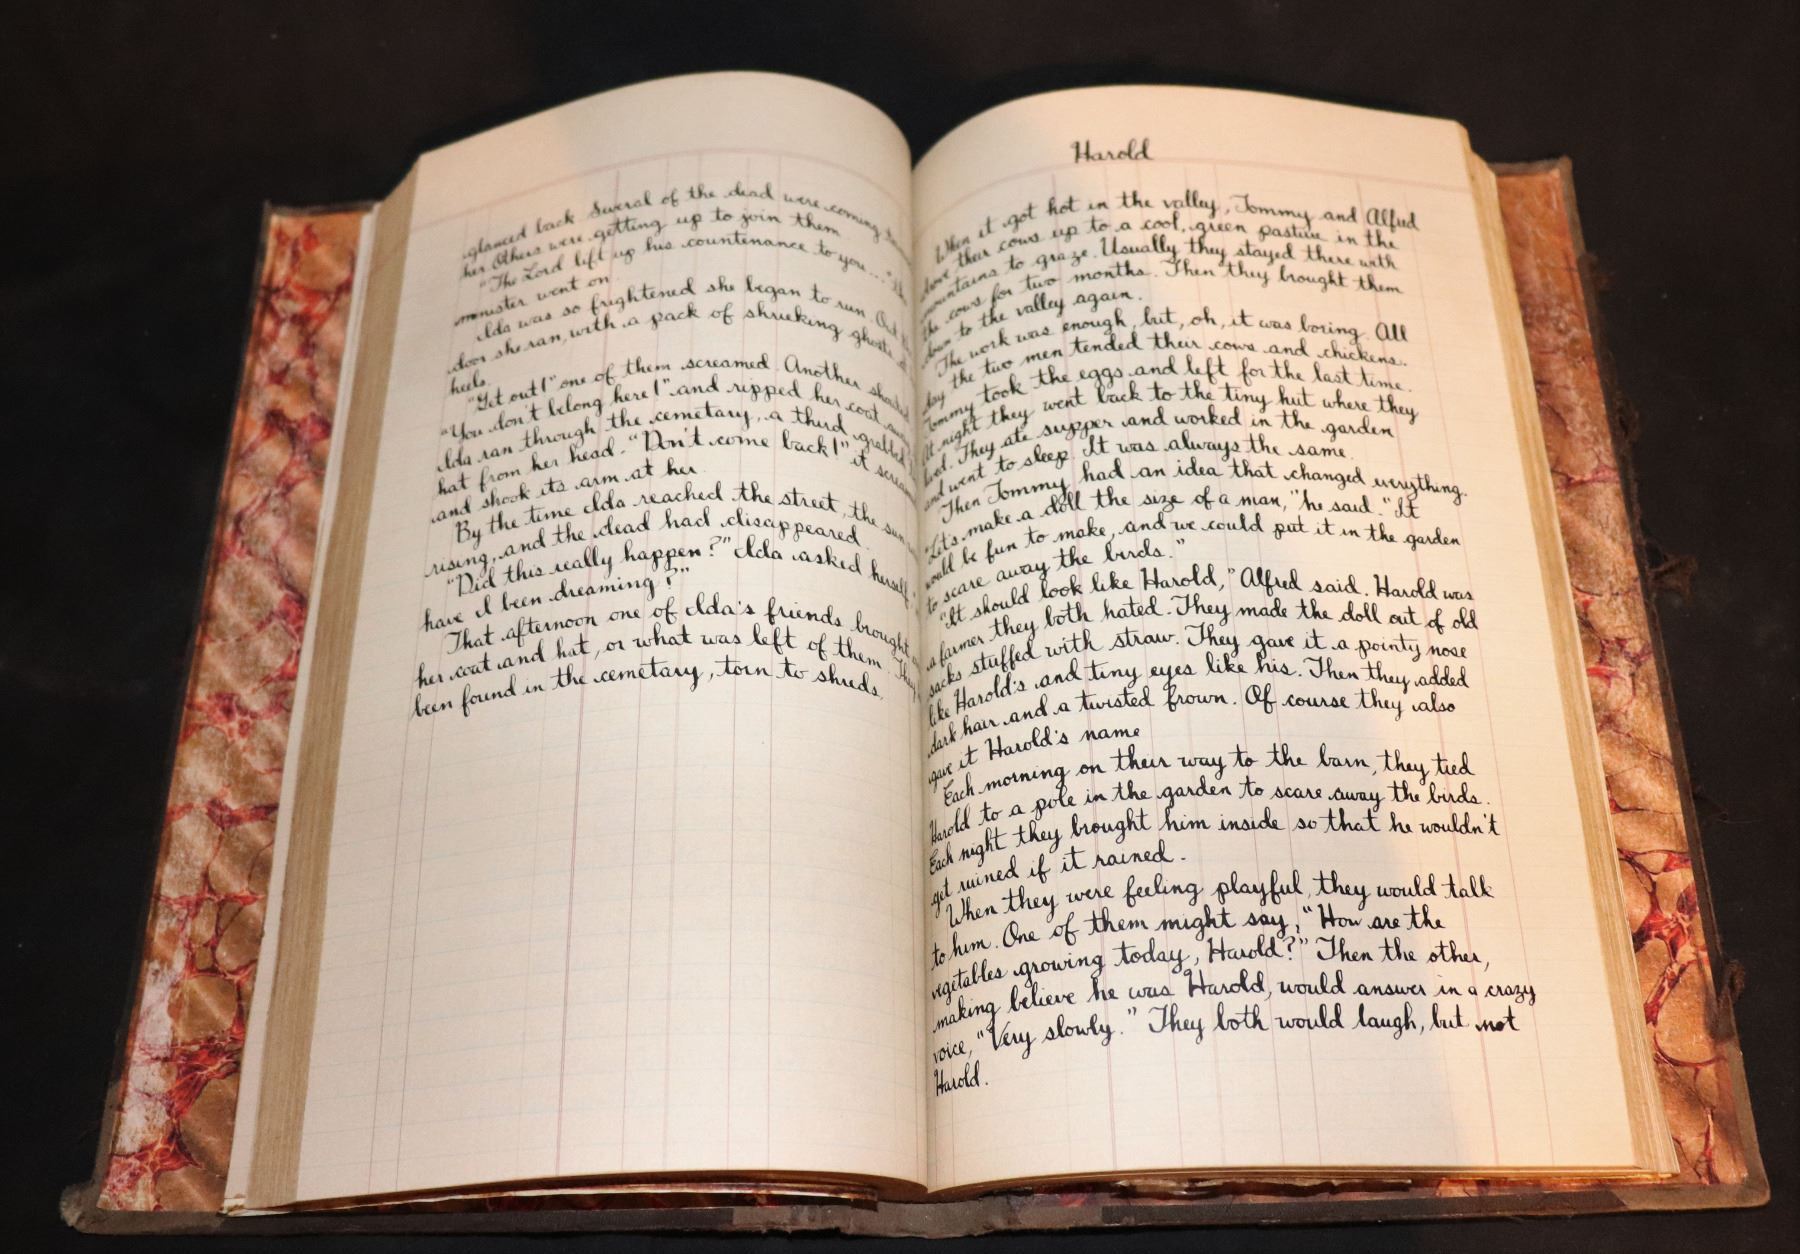 glanced back Several of the dead were coming
her Others were getting up to join them
"The Lord lift up his countenance to you..."
minister went on
Ida was so frightened she began to run. Out
door she ran, with a pack of shrieking ghosts
heels.
"Get out!" one of them screamed. Another
"You don't belong here!" and ripped her coat
Ida ran through the cemetary, a third grabbed
hat from her head. "Don't come back!" it
and shook its arm at her.
By the time Ida reached the street, the sun
rising, and the dead had disappeared.
"Did this really happen?" Ida asked herself
have I been dreaming?"
That afternoon one of Ida's friends brought
her coat and hat, or what was left of them They
been found in the cemetary, torn to shreds.
Harold
When it got hot in the valley, Tommy and Alfred
drove their cows up to a cool, green pasture in the
mountains to graze. Usually they stayed there with
the cows for two months. Then they brought them
down to the valley again.
The work was enough, but, oh, it was boring. All
day the two men tended their cows and chickens.
Tommy took the eggs and left for the last time.
At night they went back to the tiny hut where they
lived. They ate supper and worked in the garden
and went to sleep. It was always the same.
Then Tommy had an idea that changed everything.
"Let's make a doll the size of a man," he said. "It
would be fun to make, and we could put it in the garden
to scare away the birds."
"It should look like Harold," Alfred said. Harold was
a farmer they both hated. They made the doll out of old
sacks stuffed with straw. They gave it a pointy nose
like Harold's and tiny eyes like his. Then they added
dark hair and a twisted frown. Of course they also
gave it Harold's name
Each morning on their way to the barn, they tied
Harold to a pole in the garden to scare away the birds.
Each night they brought him inside so that he wouldn't
get ruined if it rained.
When they were feeling playful, they would talk
to him. One of them might say, "How are the
vegetables growing today, Harold?" Then the other,
making believe he was Harold, would answer in a crazy
voice, "Very slowly." They both would laugh, but not
Harold.